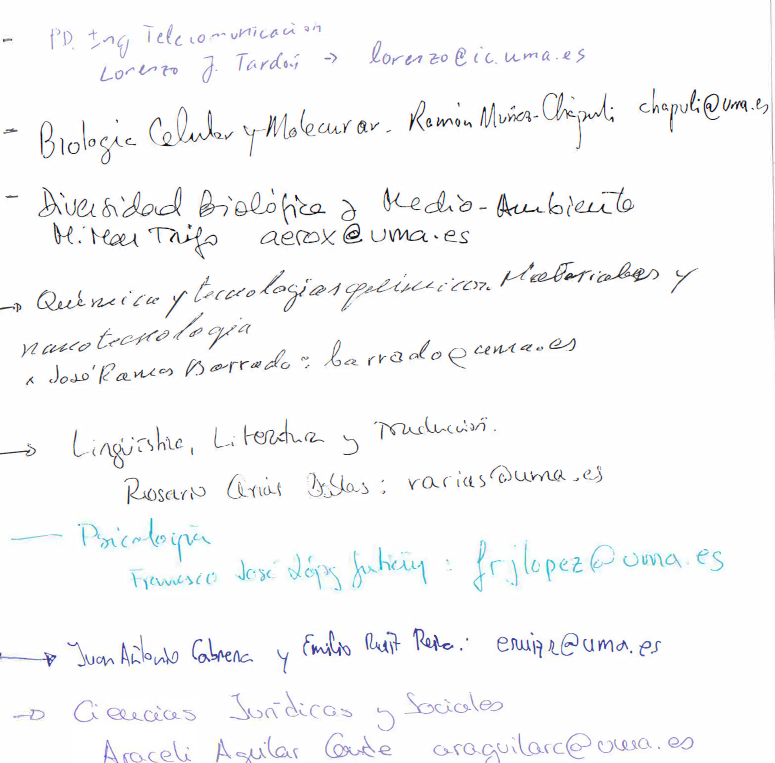 - PD. Ing Telecomunicación
Lorenzo J. Tardón → lorenzo@ic.uma.es
- Biología Celular y Molecular. Ramón Muñoz-Chápuli chapuli@uma.es
- Diversidad Biológica y Medio-Ambiente
M. Mar Trigo aerox@uma.es
→ Química y tecnologías químicas. Materiales y
nanotecnología
José Ramos Barrado: barrado@uma.es
→ Lingüística, Literatura y Traducción.
Rosario Arias : varias@uma.es
— Psicología
Francisco José López Gutiérrez : frjlopez@uma.es
→ Juan Antonio Cabrera y Emilio Ruiz Reina: eruizr@uma.es
→ Ciencias Jurídicas y Sociales
Araceli Aguilar Conde araguilarc@uma.es